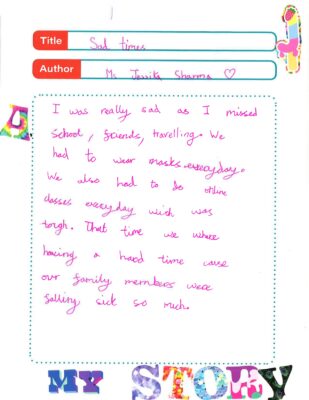 Title Sad times
Author Ms Jessika Sharma ♡
I was really sad as I missed
school, friends, travelling. We
had to wear masks everyday.
We also had to do online
classes everyday wich was
tough. That time we where
having a hard time cause
our family members were
falling sick so much.
MY STORY